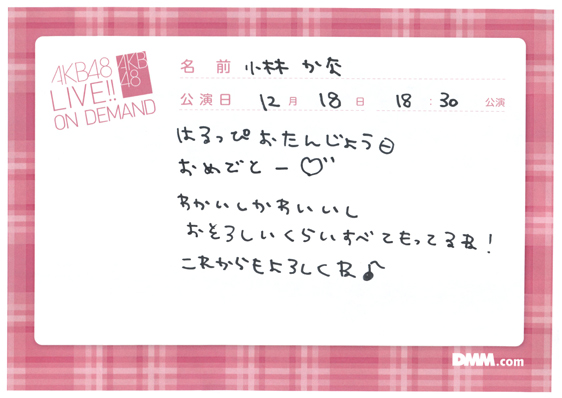 AKB48
LIVE!!
ON DEMAND
AKB
48
名 前 小林 かな
公演日 12 月 18 日 18 : 30 公演
はるっぴおたんじょう日
おめでとー♡
わかいしかわいいし
おそろしいくらいすべてもってるな!
これからもよろしくな♪
DMM.com